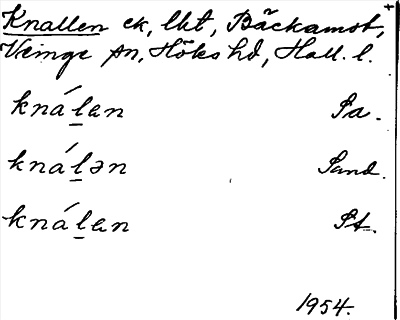 Knallen ek, lht, Bäckamot,
Veinge sn, Höks hd, Hall. l.
knál̲en Sa.
knál̲ən Sand.
knál̲en St.
1954.